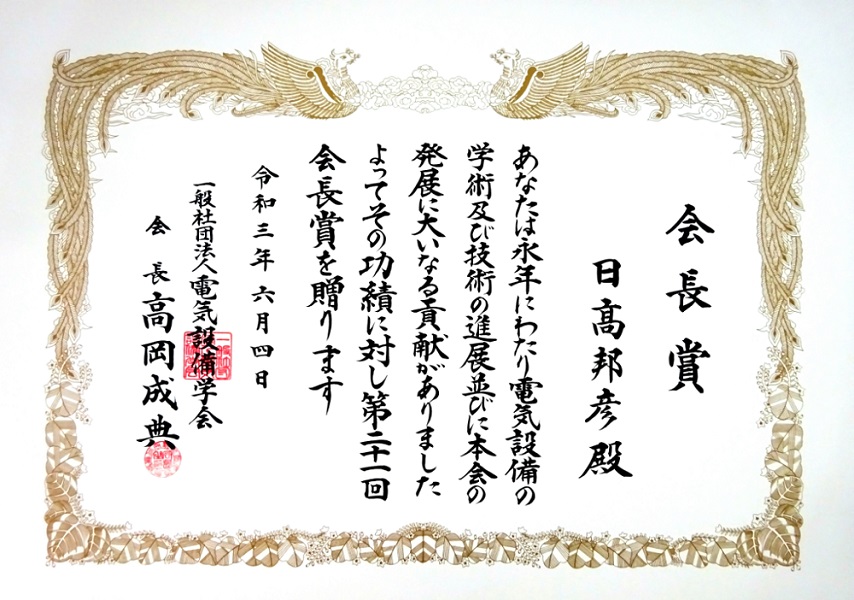 会長賞
日髙邦彦殿
あなたは永年にわたり電気設備の
学術及び技術の進展並びに本会の
発展に大いなる貢献がありました
よってその功績に対し第二十一回
会長賞を贈ります
令和三年六月四日
一般社団法人電気設備学会
会長高岡成典